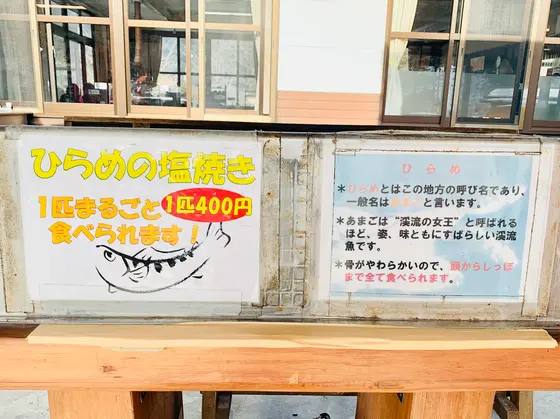 ひらめの塩焼き
1匹まるごと 1匹400円
食べられます！
ひらめ
＊ひらめとはこの地方の呼び名であり、
一般名はあまごと言います。
＊あまごは“渓流の女王”と呼ばれる
ほど、姿、味ともにすばらしい渓流
魚です。
＊骨がやわらかいので、頭からしっぽ
まで全て食べられます。